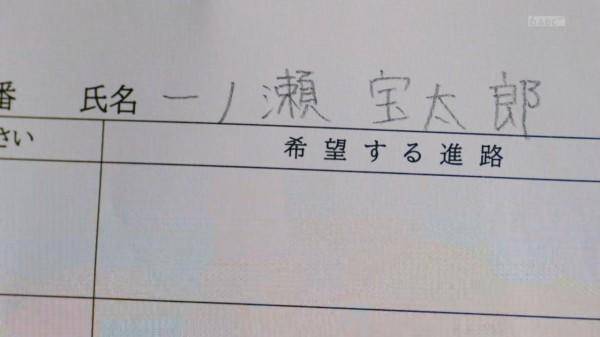 abc
番 氏名 一ノ瀬 宝太郎
さい
希望する進路